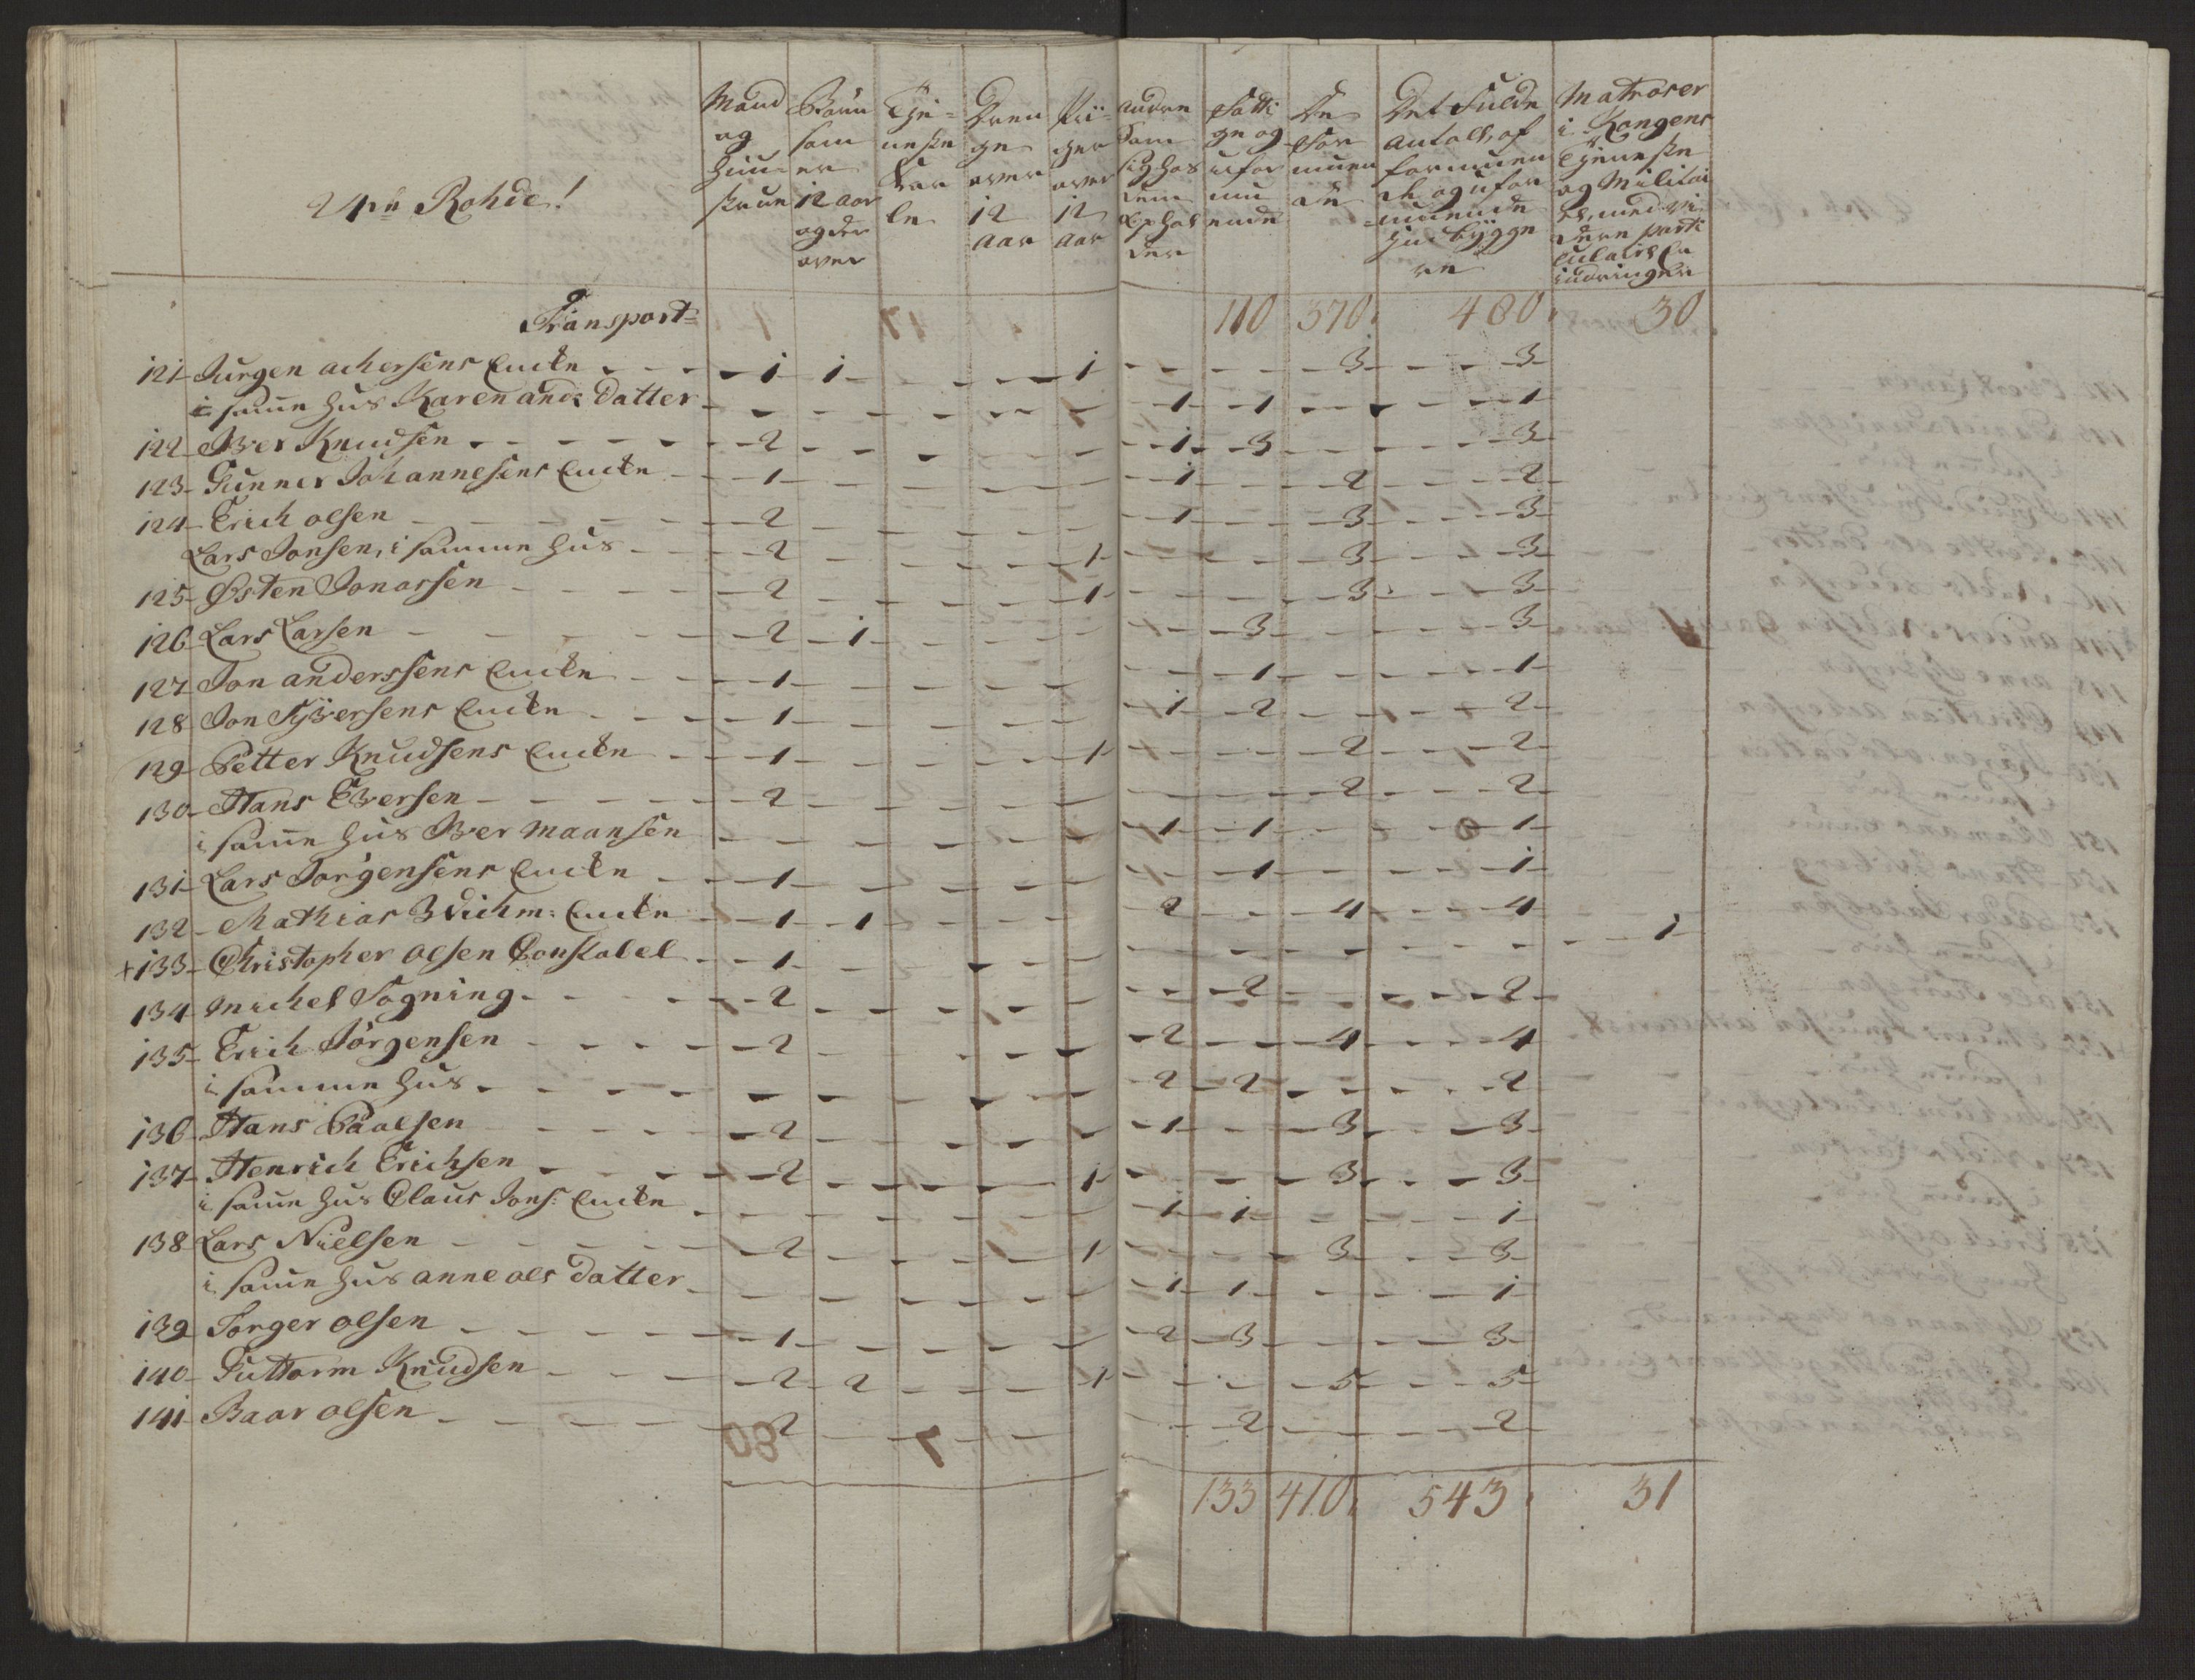 24de Rohde!
Mand og Huustrue
Börn som er 12 aar og der over
Tjeneste Karle
Drenge over 12 aar
Piiger over 12 aar
Andre Som sig hos dem opholder
Fattige og uformuende
De Formuende
Det Fulde Antall, af formuende og uformuende Indbyggere
Matroser i Kongens Tjeneste og Militaire, med videre
Transport 110 370 480 30
121 Jurgen achersens Encke - 1 1 - - 1 - - 3 - 3
i samme Hus Karen ands Datter - - - - - 1 1 - 1
122 Iver Knudsen - 2 - - - - 1 3 - 3
123 Gunner Johannesens Encke - 1 - - - - 1 - 2 - 2
124 Erich olsen - 2 - - - - 1 - 3 - 3
Lars Jonsen, i samme Hus - 2 - - - 1 - - 3 - 3
125 Østen Jonassen - 2 - - - 1 - - 3 - 3
126 Lars Larsen - 2 1 - - - - 3 - 3
127 Jon anderssens Encke - 1 - - - - - 1 - 1
128 Jon Syversens Encke - 1 - - - - 1 2 - 2
129 Petter Knudsens Encke - 1 - - - 1 - - 2 - 2
130 Hans Eversen - 2 - - - - - - 2 - 2
i samme Hus Iver Maansen - - - - - 1 1 - 1
131 Lars Jorgensens Encke - 1 - - - - - 1 - 1
132 Mathias Wichm: Encke - 1 1 - - - 2 - 4 - 4
+133 Christopher olsen Constabel - 1 - - - - - - - - 1
134 Michel Sogning - 2 - - - - - 2 - 2
135 Erich Jörgensen - 2 - - - - 2 - 4 - 4
i samme Hus - - - - - 2 2 - 2
136 Hans Paalsen - 2 - - - - 1 - 3 - 3
137 Henrich Erichsen - 2 - - - 1 - - 3 - 3
i samme Hus Claus Jons: Encke - - - - - 1 1 - 1
138 Lars Nielsen - 2 - - - 1 - - 3 - 3
i samme Hus anne ols Datter - - - - - 1 1 - 1
139 Torger olsen - 1 - - - - 2 3 - 3
140 Guttorm Knudsen - 2 2 - - 1 - - 5 - 5
141 Baar olsen - 2 - - - - - 2 - 2
133 410 543 31